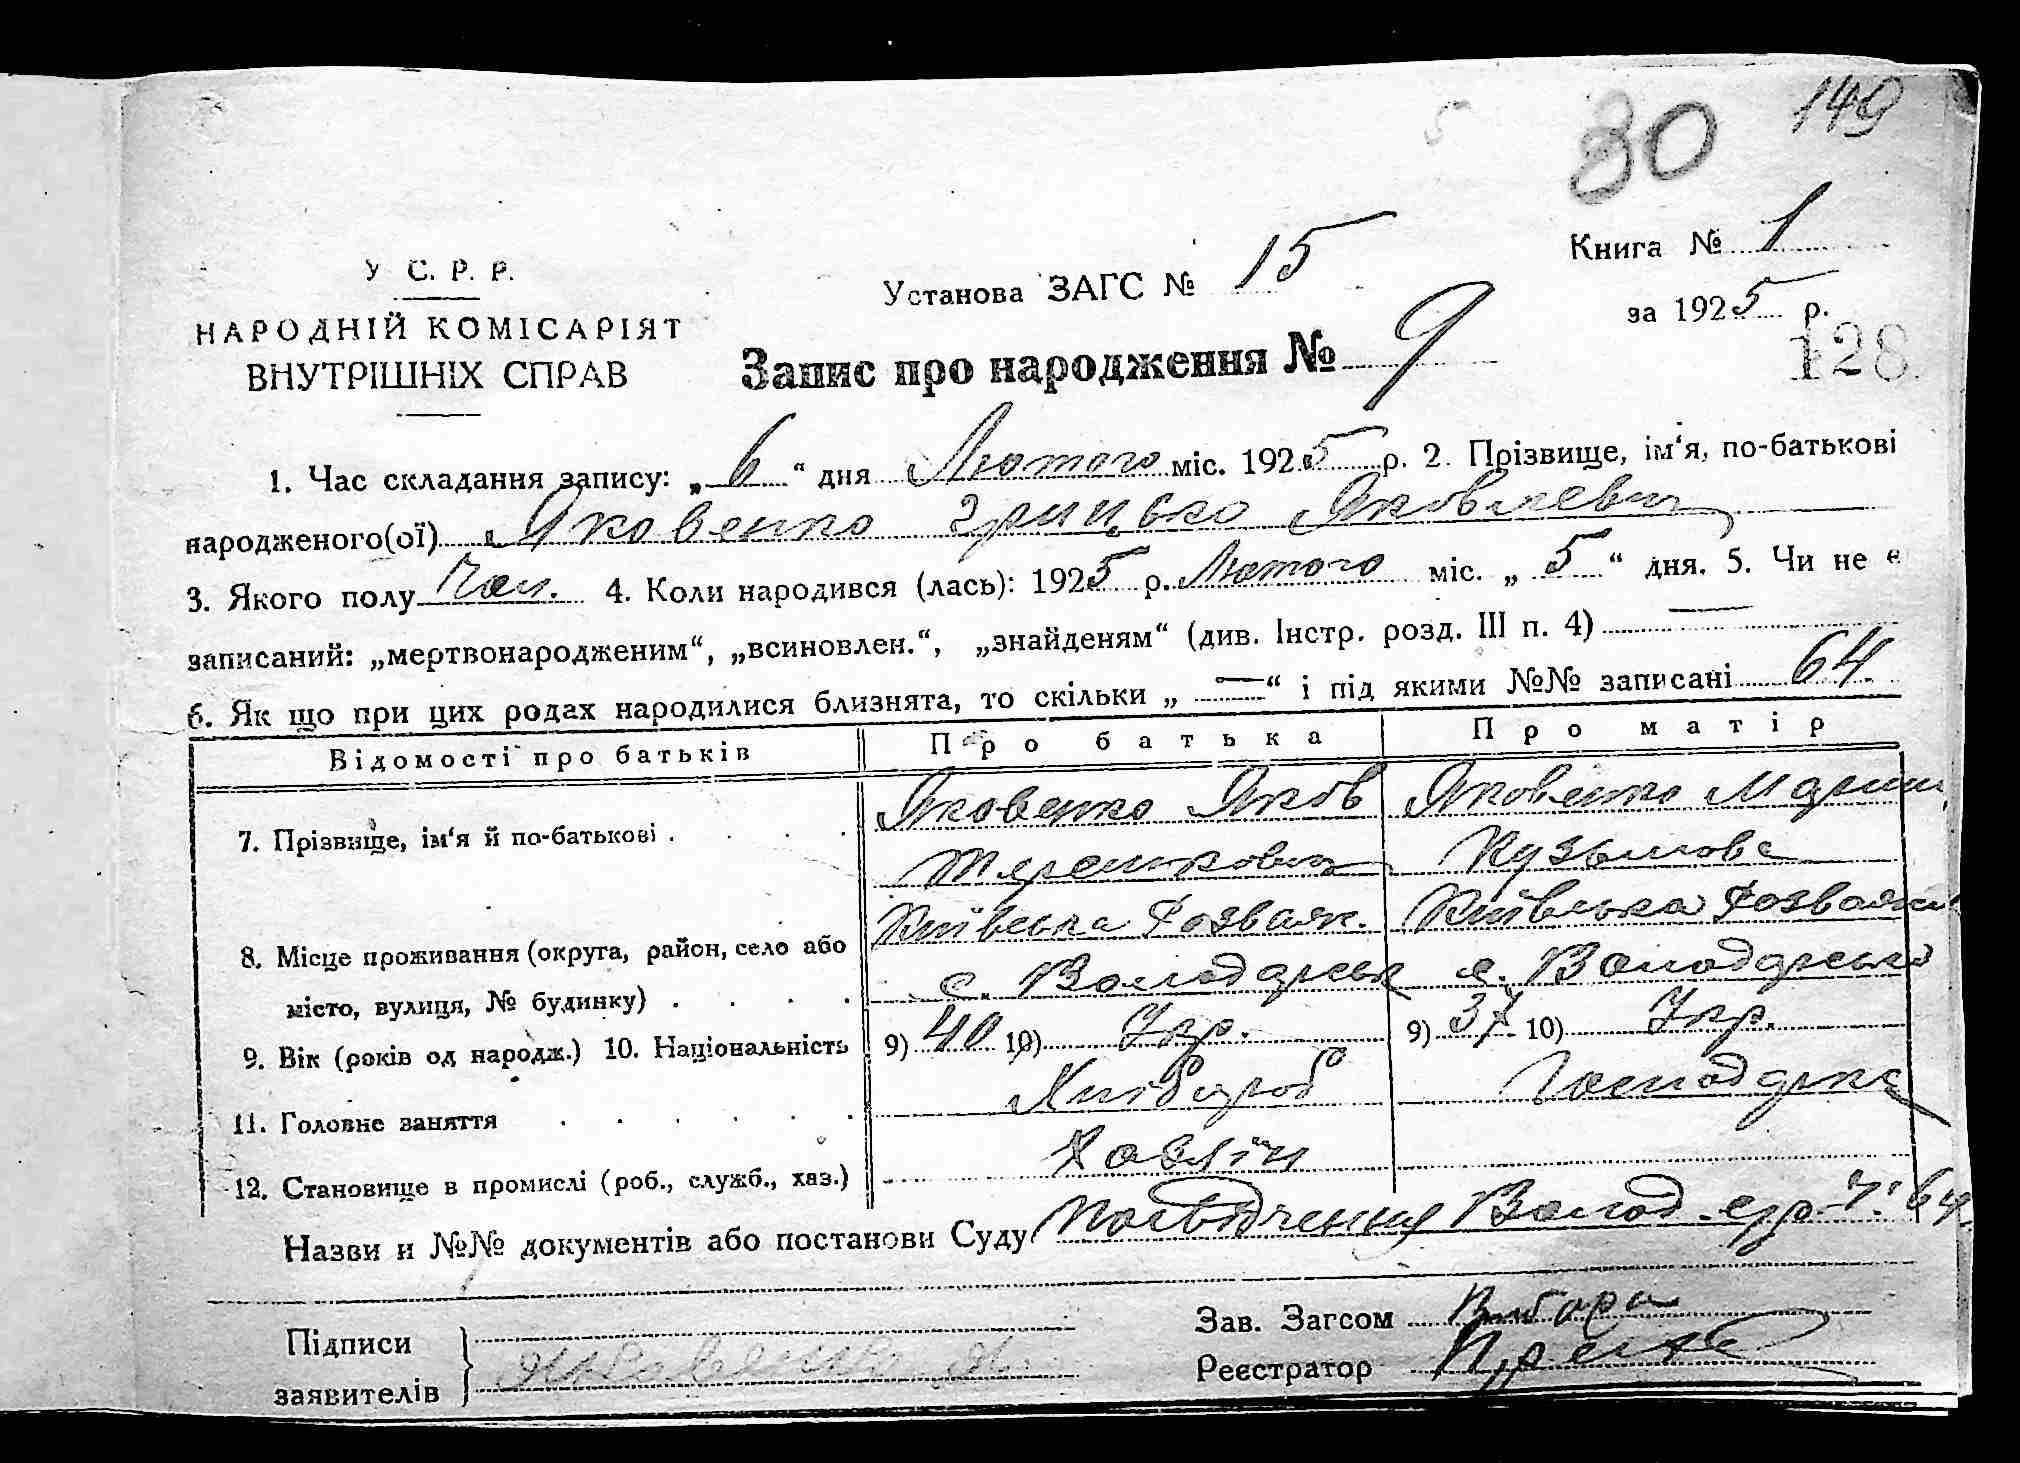 149
80
Книга № 1
У С. Р. Р.
Установа ЗАГС № 15
за 1925 р.
НАРОДНІЙ КОМІСАРІЯТ
ВНУТРІШНІХ СПРАВ
Запис про народження № 9
128
1. Час складання запису: „ 6 “ дня Лютого міс. 1925 р. 2. Прізвище, ім‘я, по-батькові
народженого(ої) Яковенко Грицько Яковлевич
3. Якого полу Чол. 4. Коли народився (лась): 1925 р. Лютого міс. „ 5 “ дня. 5. Чи не є
записаний: „мертвонародженим“, „всиновлен.“, „знайденям“ (див. Інстр. розд. III п. 4) —
6. Як що при цих родах народилися близнята, то скільки „ — “ і під якими №№ записані 64
Відомості про батьків Про батька Про матір
7. Прізвище, ім‘я й по-батькові . . . . Яковенко Яков Яковенко
Терешкович Кузьмова
8. Місце проживання (округа, район, село або Київська Розваж. Київська
місто, вулиця, № будинку) . . . . с. Володарськ с. Володарська
9. Вік (років од народж.) 10. Національність 9) 40 10) Укр. 9) 37 10) Укр.
11. Головне заняття . . . . . . Хлібороб Господарка
12. Становище в промислі (роб., служб., хаз.) Хазяїн
Назви и №№ документів або постанови Суду Посвідчення Волод. с/р ч. 64
Підписи
заявителів
Яковенко
Зав. Загсом
Реєстратор